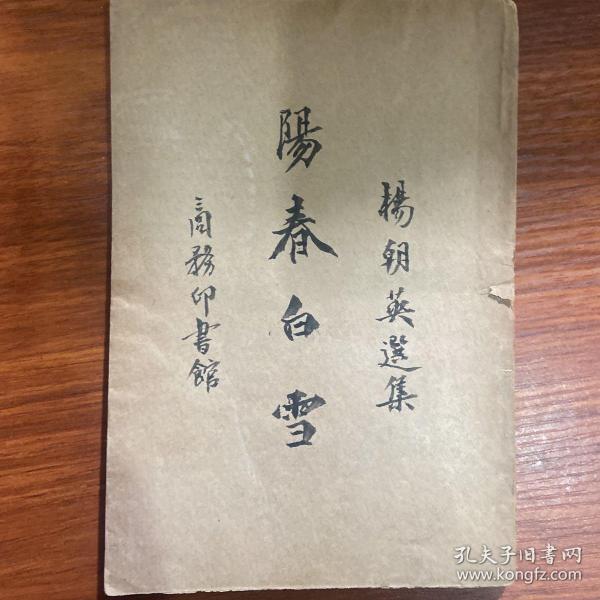 楊朝英選集
陽春白雪
商務印書館
孔夫子旧書网
www.kongfz.com